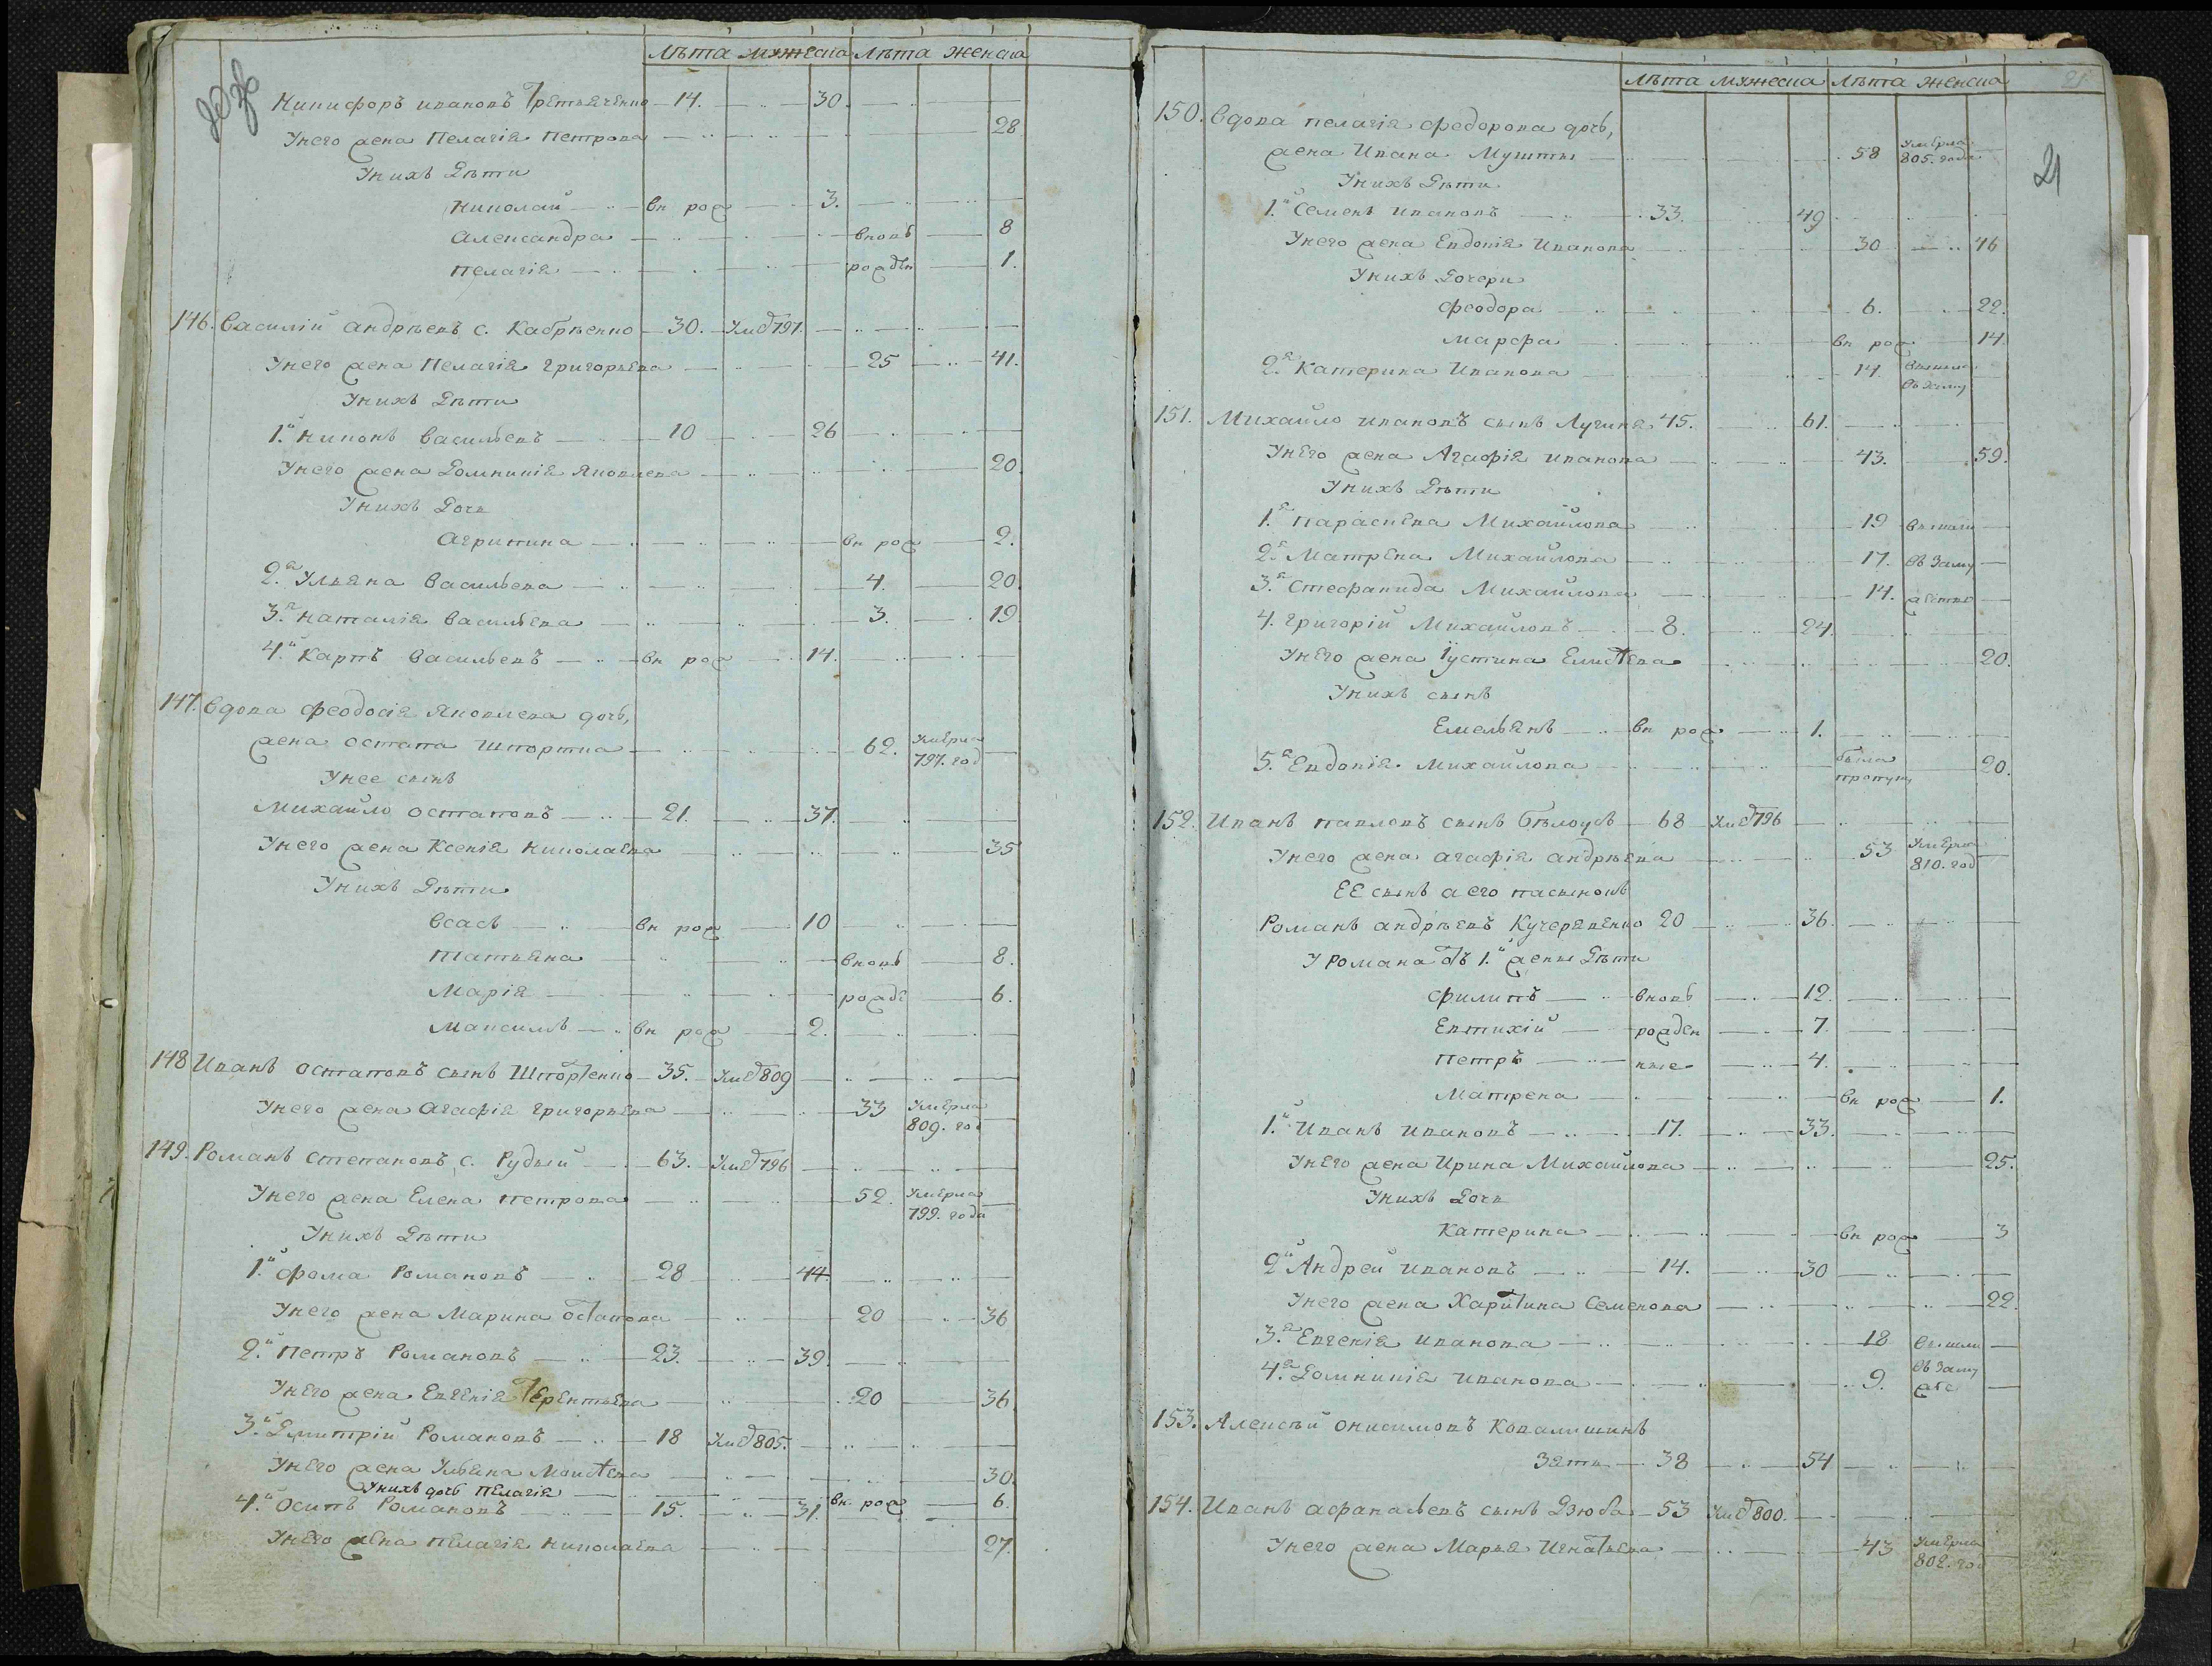 Лѣта мужеска Лѣта женска
Никифоръ ивановъ Третьяченко 14. 30.
Унего жена Пелагія Петрова 28
Унихъ Дѣти
Николай вн рож 3.
Александра вновь 8
Пелагія рожден 1.
146. Василій андрѣевъ с. Кабрѣенко 30. Умер 797.
Унего жена Пелагія григорьева 25 41.
Унихъ Дѣти
1.й Никонъ Васильевъ 10 26
Унего жена Домникія Яковлева 20
Унихъ Дочь
Агрипина вн рож 2.
2.я Ульяна Васильева 4. 20
3.я Наталія Васильева 3. 19
4.й Карпъ Васильевъ вн рож 14.
147. Вдова феодосія Яковлева дочь,
жена остапа Шпортка 62. Умерла 797. год
Унее сынъ
Михайло остаповъ 21. 37.
Унего жена Ксенія Николаева 35
Унихъ Дѣти
Власъ вн рож 10
Татьяна вновь 8.
Марія рожде 6.
Максимъ вн рож 2.
148 Иванъ остаповъ сынъ Шпортенко 35. Умер 809
Унего жена Агафія григорьева 33 Умерла 809. год
149. Романъ степановъ с. Рудый 63. Умер 796
Унего жена Елена петрова 52. Умерла 799. года
Унихъ Дѣти
1.й фома Романовъ 28 44.
Унего жена Марина остапова 20 36
2.й Петръ Романовъ 23. 39.
Унего жена Евгенія Терентьева 20 36
3.й Дмитрій Романовъ 18 Умер 805.
Унего жена Ульяна Моисеева 30.
Унихъ дочь Пелагія вн. рож 6.
4.й Осипъ Романовъ 15. 31.
Унего жена Пелагія Николаева 27.
Лѣта мужеска Лѣта женска 21
21
150. Вдова пелагія федорова дочь,
жена Ивана Мушты 58 Умерла 805. года
Унихъ Дѣти
1.й Семенъ ивановъ 33. 49
Унего жена Евдокія Иванова 30 46
Унихъ Дочери
феодора 6. 22.
марфа вн рож 14.
2.я Катерина Иванова 14. вышла въ заму
151. Михайло ивановъ сынъ Лучина 45. 61.
Унего жена Агафія иванова 43. 59.
Унихъ Дѣти
1.я Параскева Михайлова 19 вышли
2.я Матрена Михайлова 17. въ заму
3.я Стефанида Михайлова 14. жество
4. григорій Михайловъ 8. 24.
Унего жена Іустина Елисеева 20.
Унихъ сынъ
Емельянъ вн рож 1.
5.я Евдокія Михайлова была пропущ 20.
152. Иванъ павловъ сынъ Бѣлоусъ 68 Умер 796
Унего жена агафія андрѣева 53 Умерла 810. год
ЕЕ сынъ а его пасынокъ
Романъ андрѣевъ Кучеревенко 20 36
У Романа отъ 1.й жены Дѣти
филипъ вновь 12.
Евтихій рожден 7.
Петръ ные 4.
Матрена вн рож 1.
1.й Иванъ Ивановъ 17. 33.
Унего жена Ирина Михайлова 25.
Унихъ Дочь
Катерина вн рож 3
2.й Андрей ивановъ 14. 30
Унего жена Харитина Семенова 22.
3.я Евгенія иванова 18 вышли
4.я Домникія иванова 9. въ заму же
153. Алексѣй онисимовъ Ковалишинъ
зять 38 54
154. Иванъ афанасьевъ сынъ Дзюба 53 Умер 800.
Унего жена Марья Игнатьева 43 Умерла 802. год